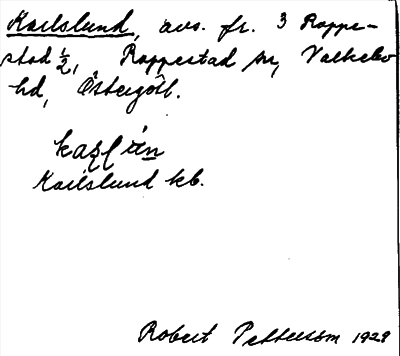 Karlslund, avs. fr. 3 Roppe-
stad ½, Rappestad sn, Valkebo
hd, Östergötl.
Karlslund kb.
Robert Pettersson 1929